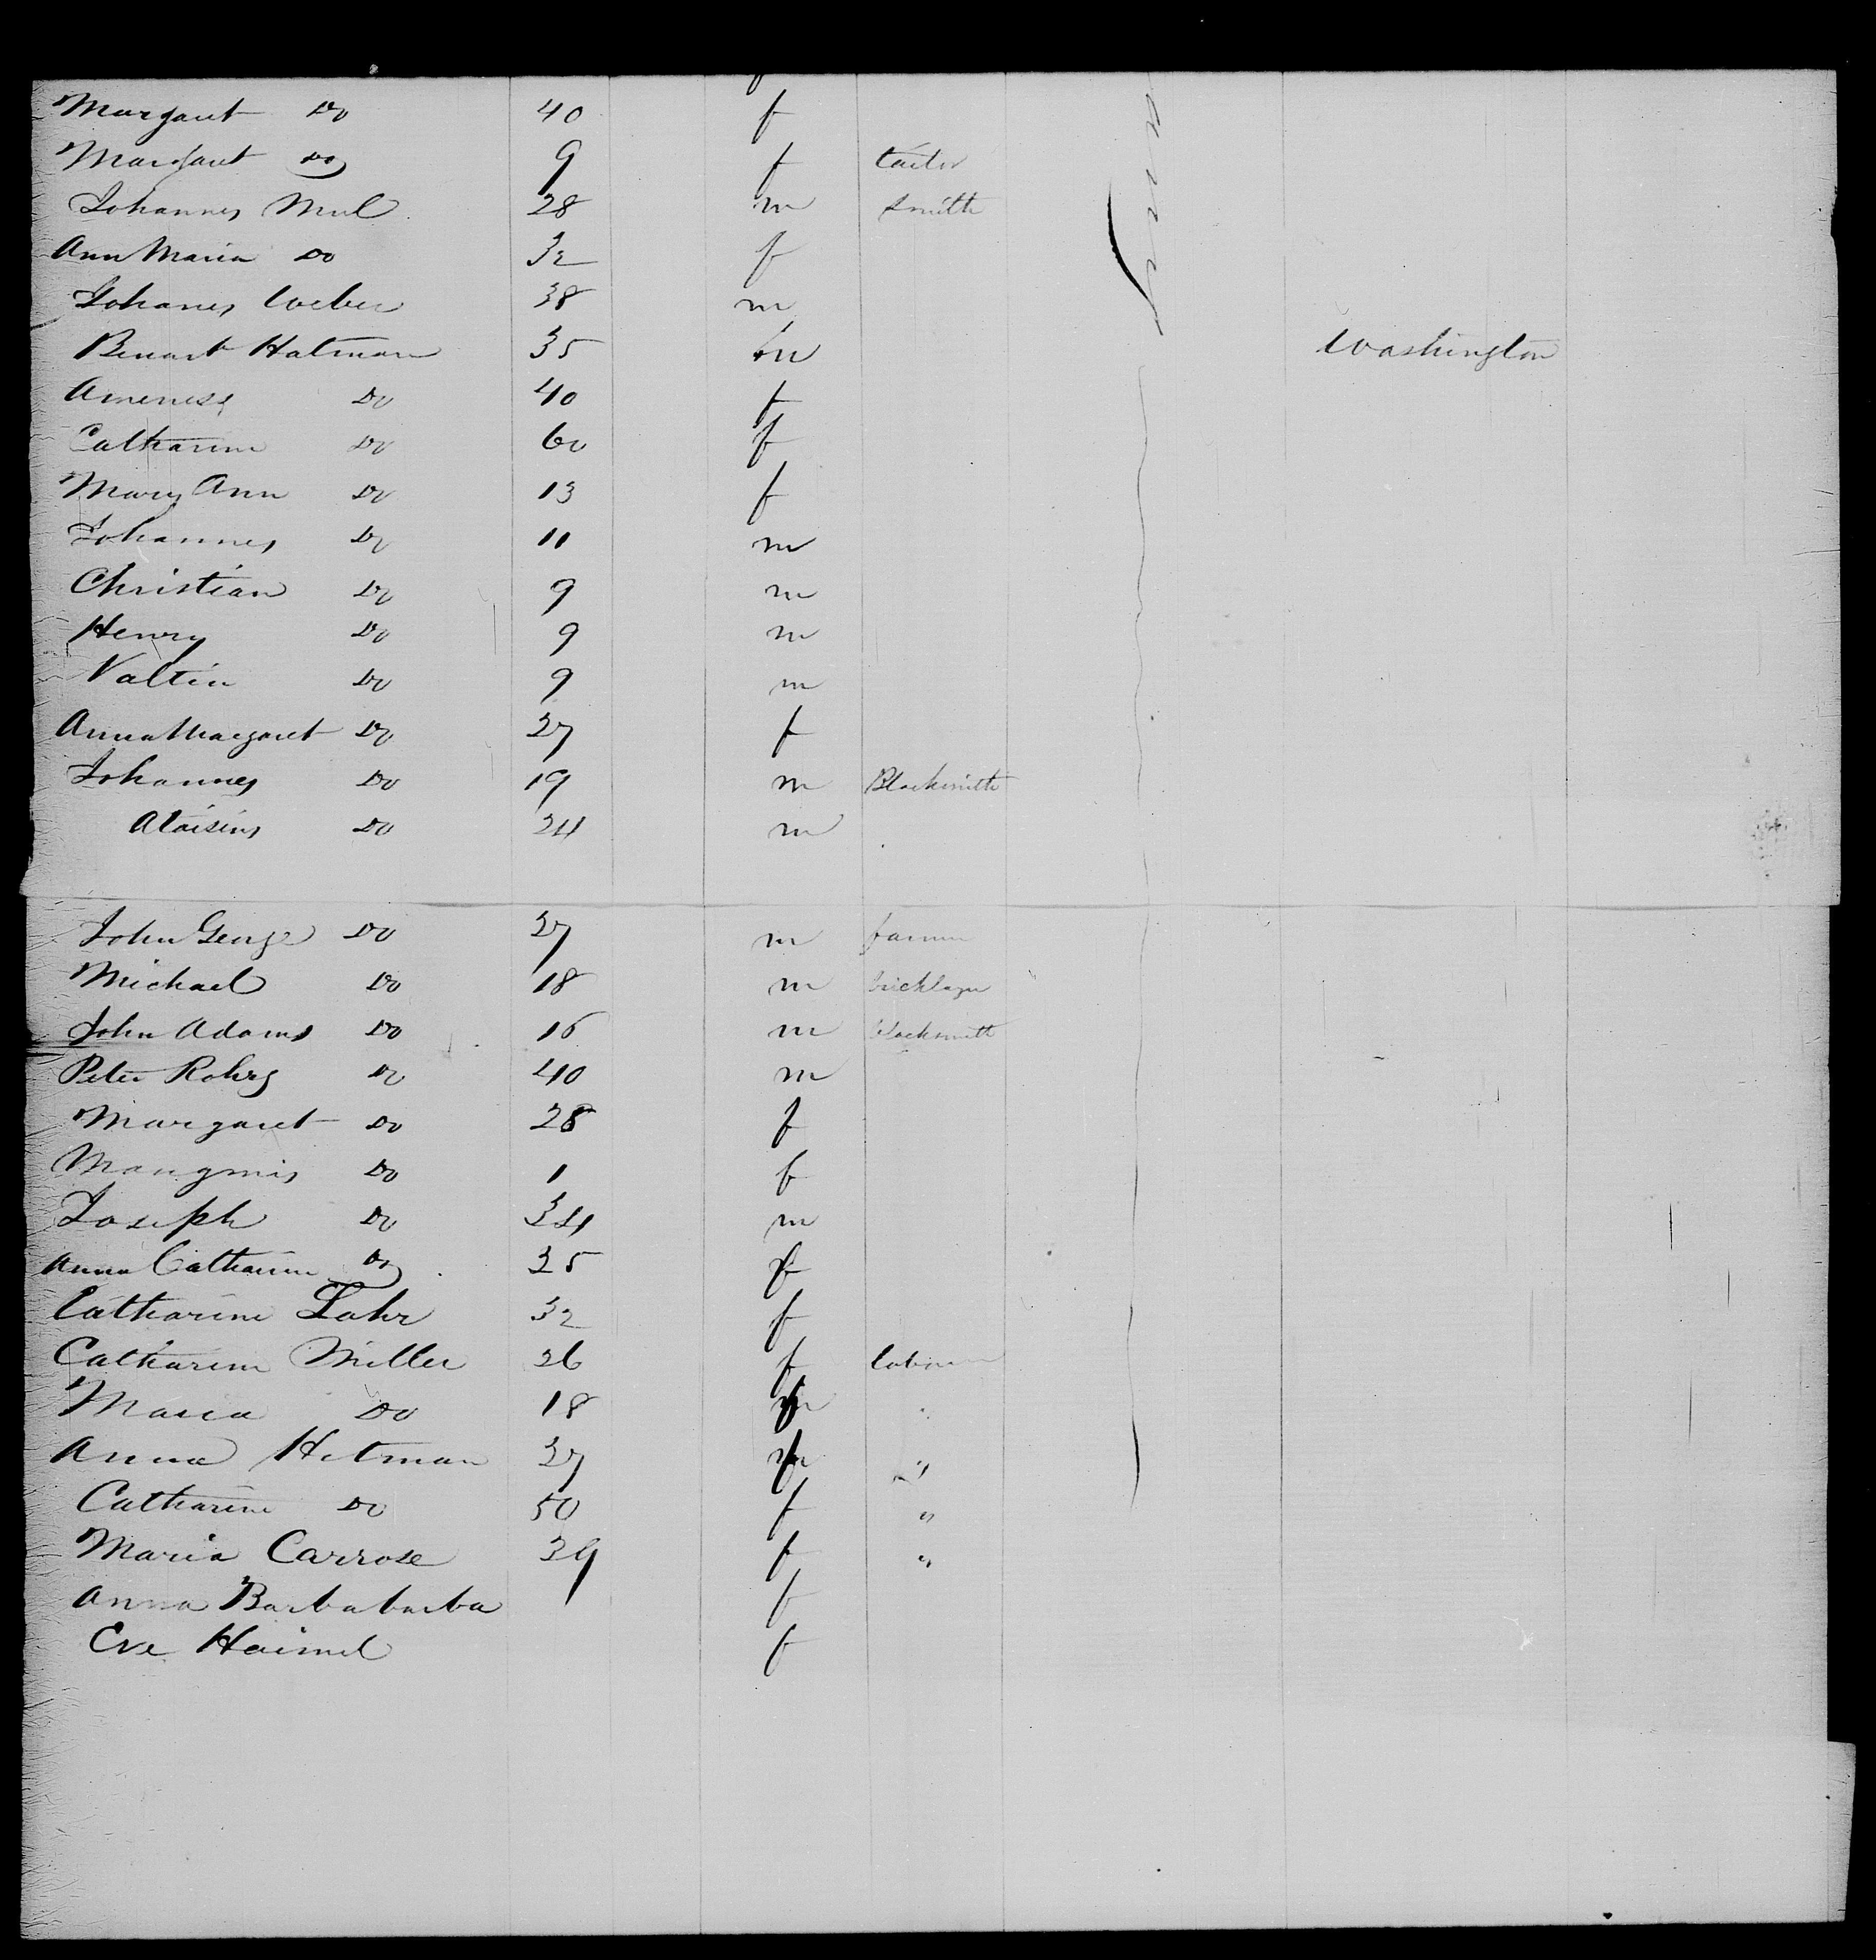 Margaret Do 40 f
Margaret Do 9 f tailor
Johannes Mul 28 m Smith
Ann Maria Do 32 f
Johanes Weber 38 m
Benart Hatman 35 m Washington
Ameness Do 40 f
Catharine Do 60 f
Mary Ann Do 13 f
Johannes Do 11 m
Christian Do 9 m
Henry Do 9 m
Valtin Do 9 m
Anna Margaret Do 27 f
Johannes Do 19 m Blacksmith
Aloisius Do 24 m
John George Do 27 m farmer
Michael Do 18 m bricklayer
John Adams Do 16 m blacksmith
Peter Rohrs Do 40 m
Margaret Do 28 f
Do 1 f
Joseph Do 34 m
Anna Catharine Do 35 f
Catharine Lahr 32 f
Catharine Miller 26 f labourer
Maria Do 18 f "
Anna Hetman 27 f "
Catharine Do 50 f "
Maria Carrose 39 f "
Anna Barbabarba f
Eve Haimel f